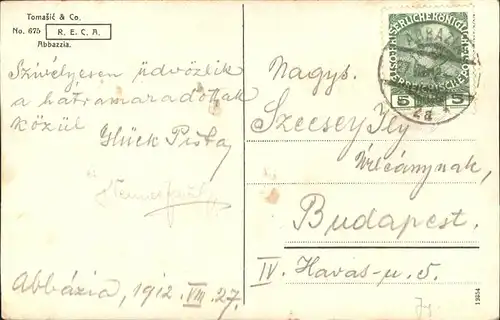 Tomašić & Co.
No. 675 R. E. C. A.
Abbazzia.
Szívélyesen üdvözlik
a hátramaradottak
közül
Glück Pista
Abbázia, 1912. VIII. 27.
KAISERLICHE KÖNIGL
5 5
ABBAZ
Nagys.
Szecsey Ily
Úrleánynak,
Budapest.
IV. Havas-u. 5.
13934